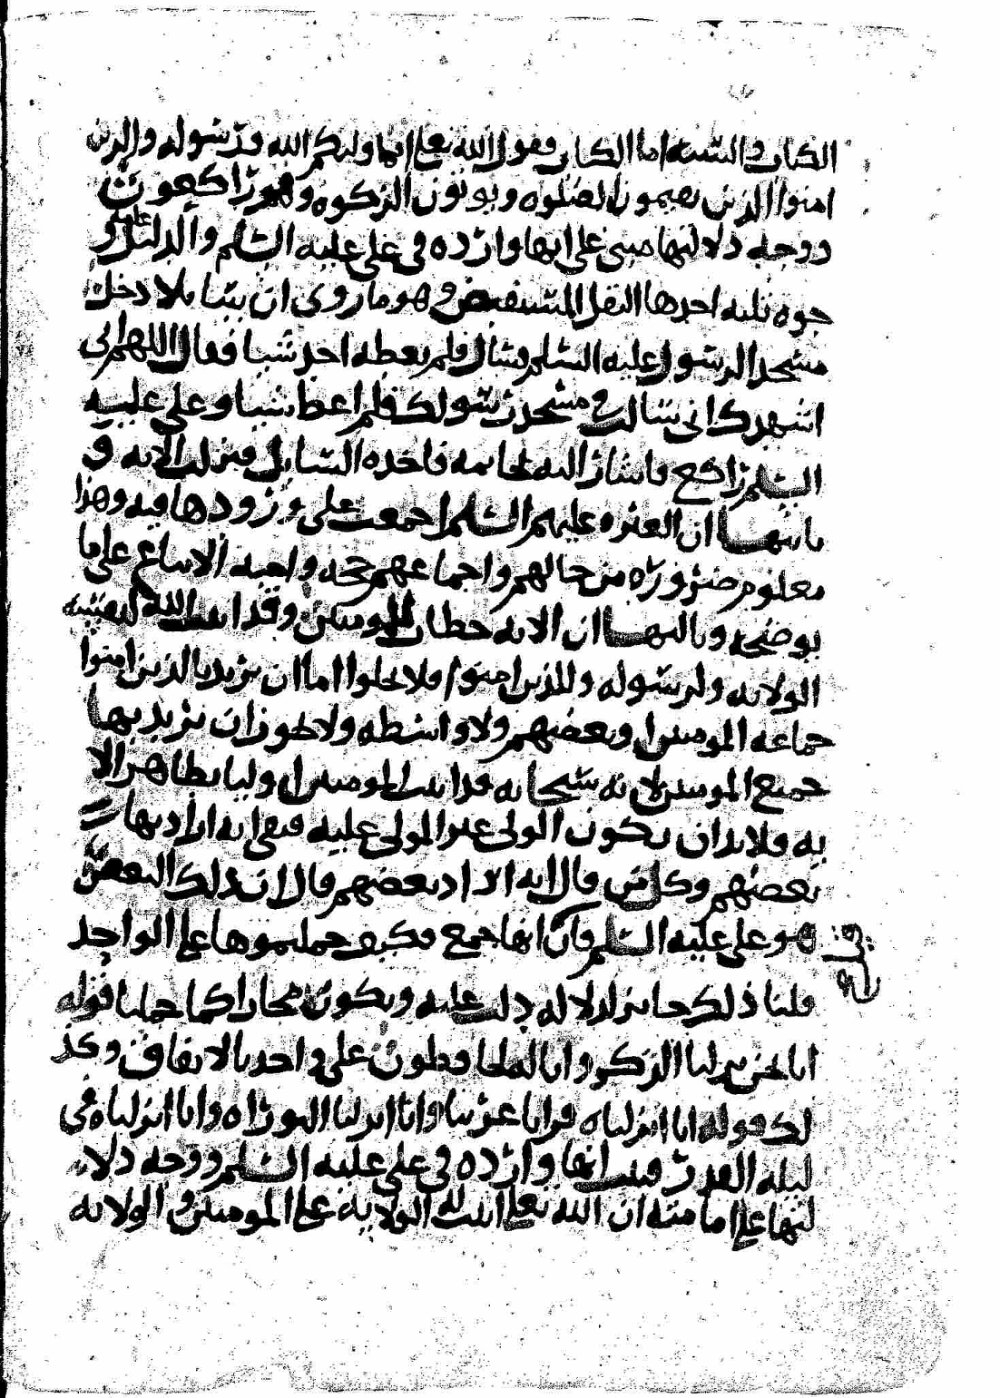 الكتاب والسنه اما الكتاب فقول الله تعلى انما وليكم الله ورسوله والذين
امنوا الذين يقيمون الصلوه ويوتون الزكوه وهم راكعون
ووجه دلالتها مبني على انها وارده في علي عليه السلم والدليل عليه و
جوه ثلثه احدها النقل المستفيض وهو ما روي ان سايلا دخل
مسجد الرسول عليه السلم فسال فلم يعطه احد شيا فقال اللهم اني
اشهدك اني سالت في مسجد رسولك فلم اعط شيا وعلي عليه
السلم راكع فاشار اليه بخاتمه فاخذه السايل فنزلت الايه و
ثانيها ان العتره عليهم السلم اجمعت على ورودها فيه وهذا
معلوم ضروره من حالهم واجماعهم حجه واجبه الاتباع على ما
يوضحه وثالثها ان الايه خطاب للمومنين وقد اثبت الله لنفسه
الولايه ولرسوله وللذين امنوا فلا يخلوا اما ان يريد بالذين امنوا
جماعه المومنين او بعضهم ولا واسطه ولا يجوز ان يريد بها
جميع المومنين لانه سبحانه قد اثبت للمومنين وليا بظاهر الا
يه فلا بد ان يكون الولي غير المولى عليه فبقي انه اراد بها
بعضهم وكل من قال انه اراد بعضهم قال ان ذلك البعض
هو علي عليه السلم فان انها جمع فكيف حملتموها على الواحد
قلنا ذلك جايز لدلاله دلت عليه ويكون مجازا كما حملنا قوله
انا نحن نزلنا الذكر وانا له لحافظون على واحد بالاتفاق وكذ
لك قوله انا انزلناه قرانا عربيا وانا انزلنا التوراه وانا انزلناه في
ليله القدر فثبت انها وارده في علي عليه السلم ووجه دلا
لتها على امامته ان الله تعلى اثبت له الولايه على المومنين والولايه